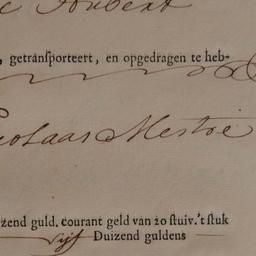 Hubert
, getransporteert, en opgedragen te heb-
Nicolaas Mestre
zend guld. courant geld van 20 stuiv. 't stuk
Vijf Duizend guldens